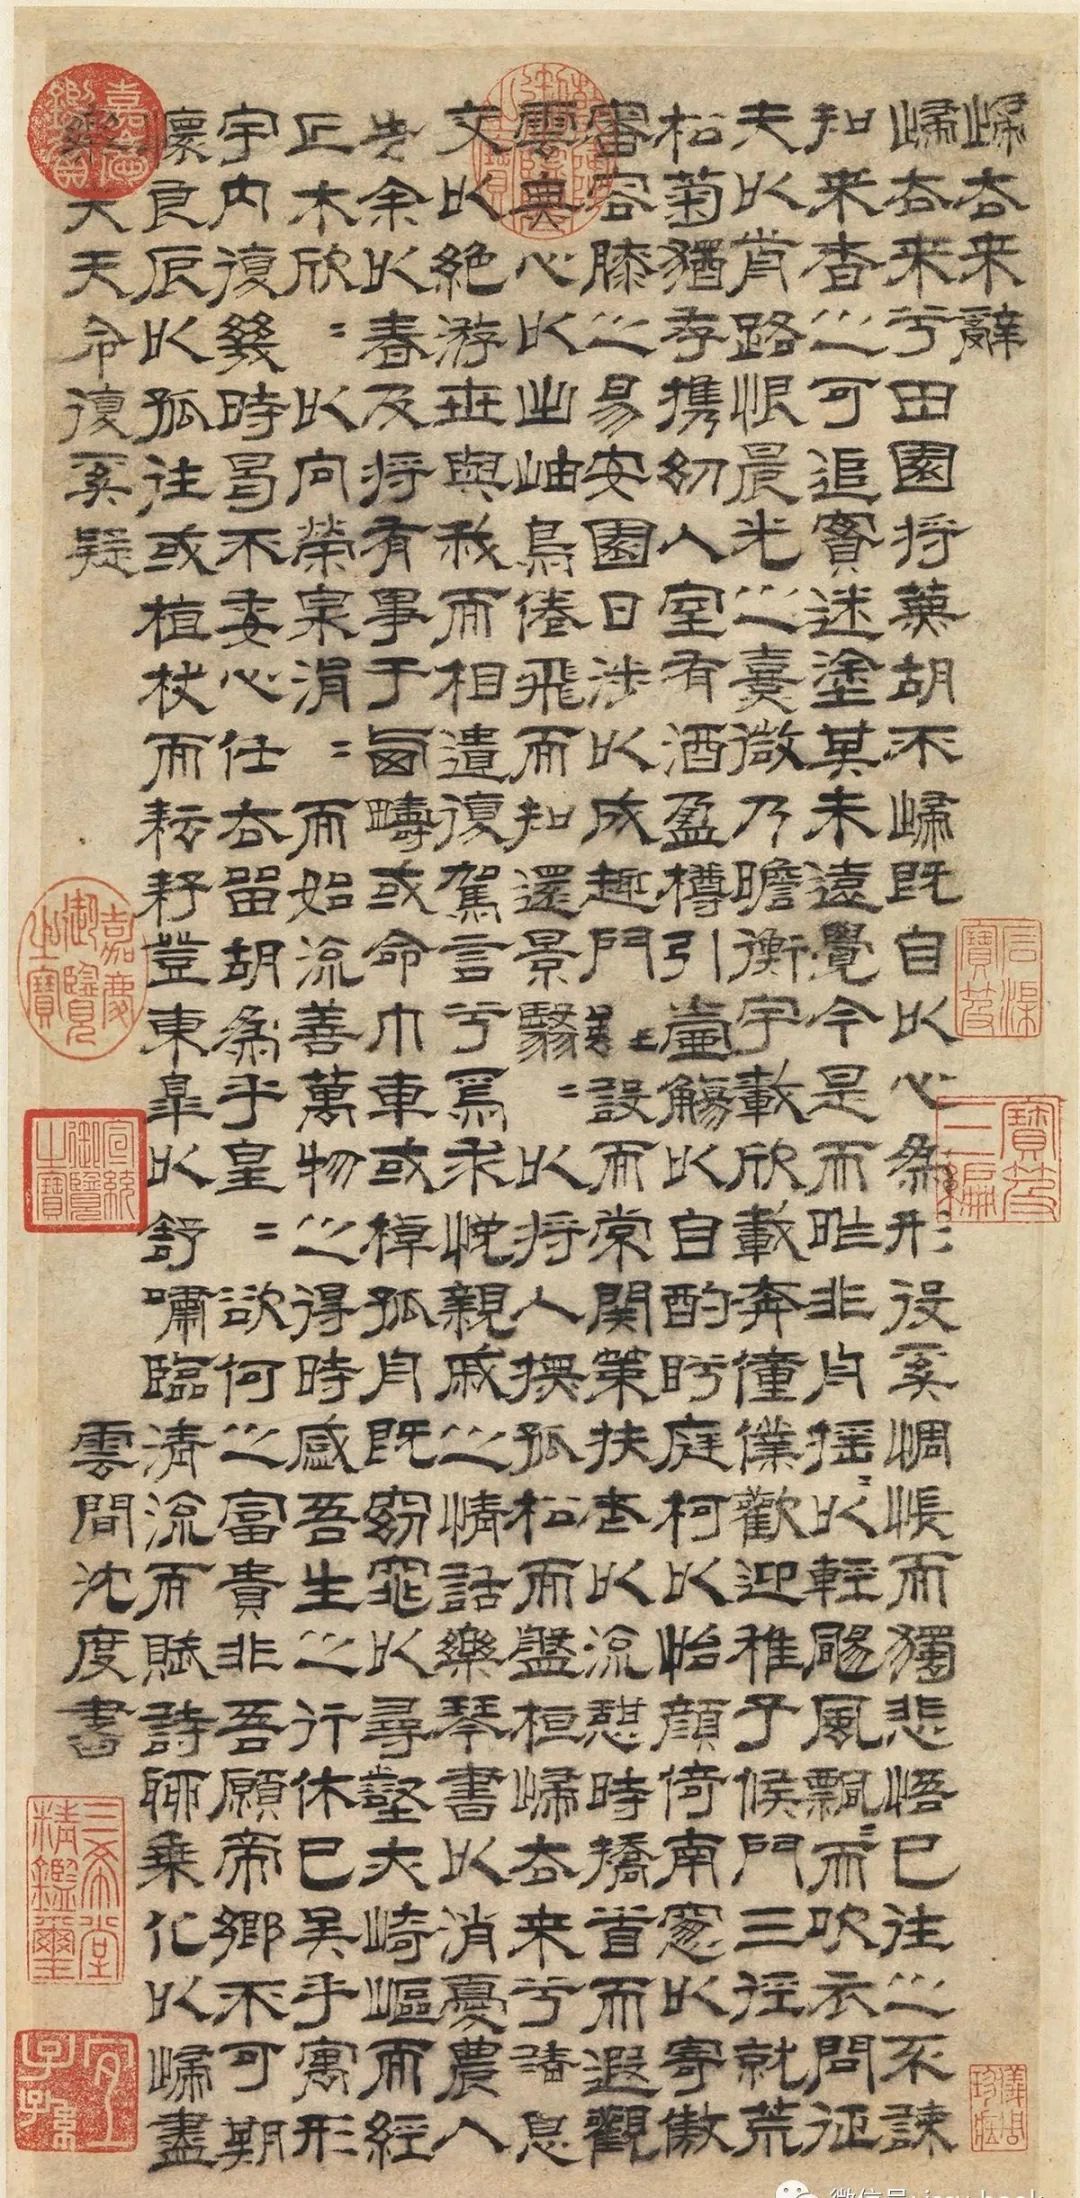 歸去来辭
歸去来兮田園将蕪胡不歸既自以心為形役奚惆悵而獨悲悟已往之不諫
知来者之可追實迷塗其未遠覺今是而昨非舟摇〻以輕颺風飄〻而吹衣問征
夫以前路恨晨光之熹微乃瞻衡宇載欣載奔僮僕歡迎稚子候門三徑就荒
松菊猶存携幼入室有酒盈樽引壺觴以自酌眄庭柯以怡顔倚南窓以寄傲
審容膝之易安園日涉以成趣門雖設而常関策扶老以流憩時矯首而遐觀
雲無心以出岫鳥倦飛而知還景翳〻以将入撫孤松而盤桓歸去来兮請息
交以絶游世與我而相遺復駕言兮焉求悦親戚之情話樂琴書以消憂農人
告余以春及将有事于西疇或命巾車或棹孤舟既窈窕以尋壑亦崎嶇而經
丘木欣〻以向榮泉涓〻而始流善萬物之得時感吾生之行休已矣乎寓形
宇内復幾時曷不委心任去留胡為乎皇〻欲何之富貴非吾願帝鄉不可期
懷良辰以孤往或植杖而耘耔登東皋以舒嘯臨清流而賦詩聊乗化以歸盡
樂夫天命復奚疑
雲間沈度書
石渠寶笈
寶笈三編
乾隆御覽之寶
嘉慶鑑賞
嘉慶御覽之寶
宣統御覽之寶
三希堂精鑑璽
宜子孫